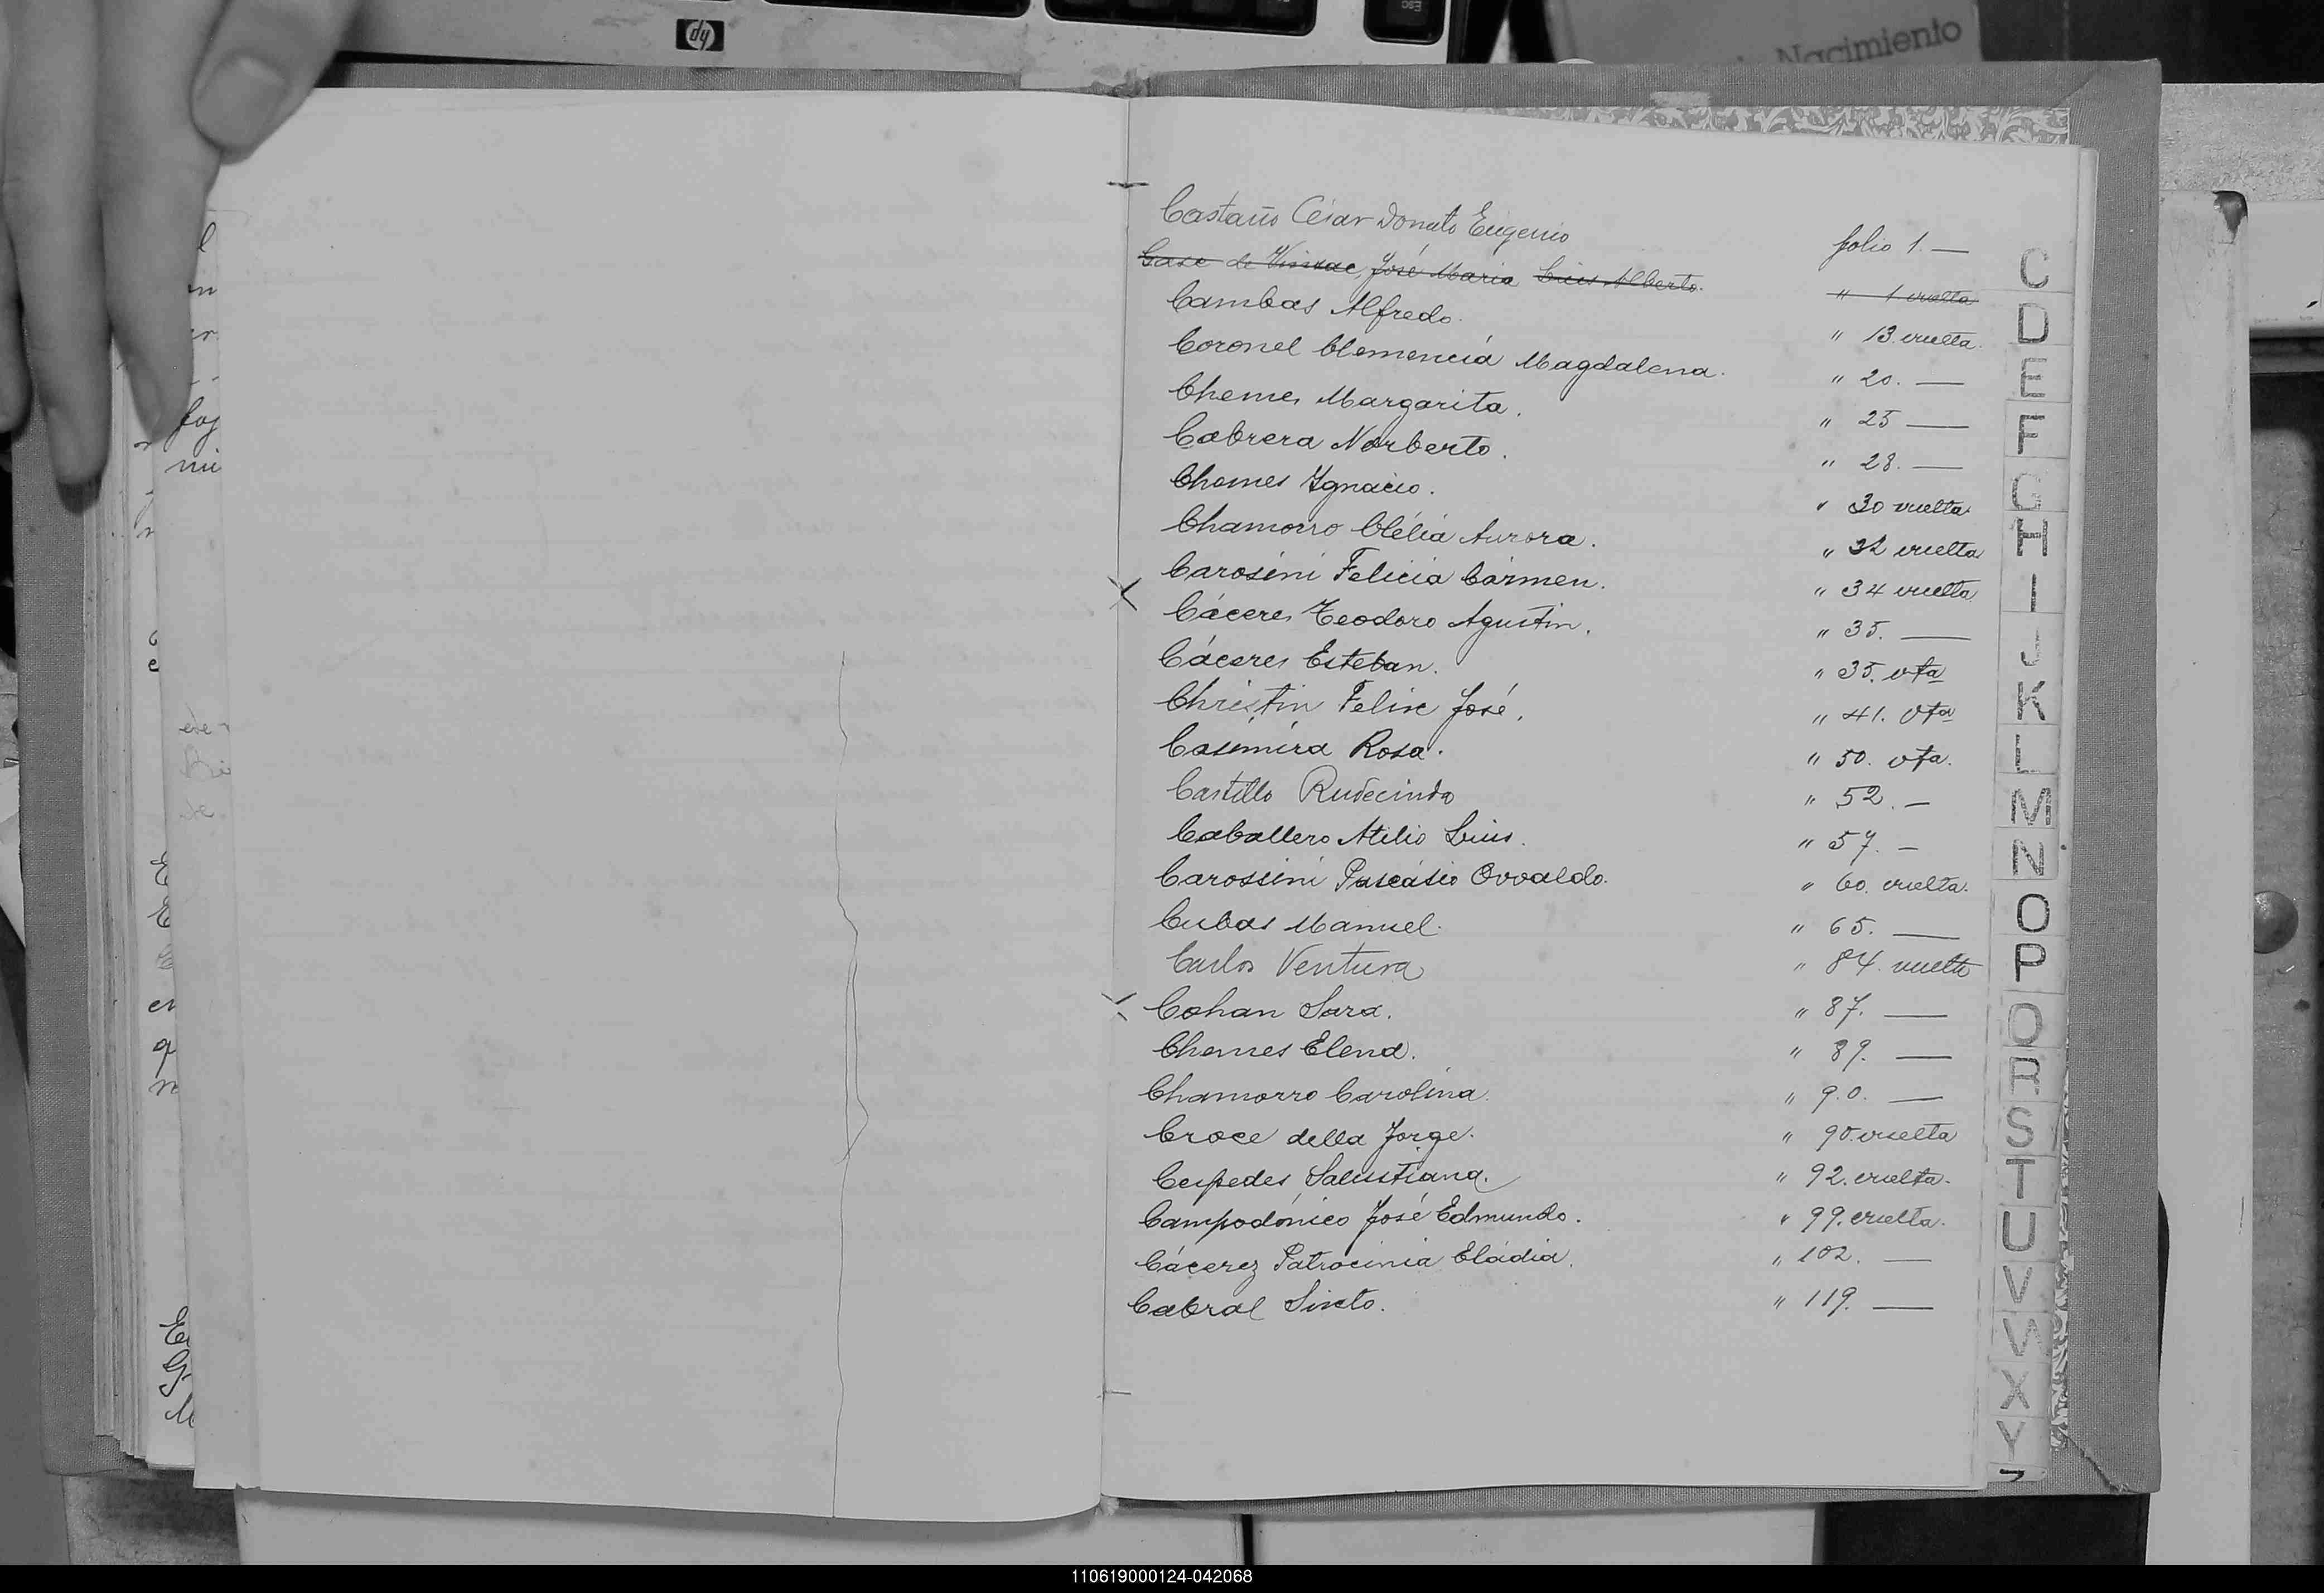 hp
ESC
Nacimiento
Castaño César Donato Eugenio folio 1. —
Case de José Maria Luis Alberto. " 1 vuelta
Cambas Alfredo. " 13. vuelta.
Coronel Clemencia Magdalena. " 20. —
Chemes Margarita. " 25 —
Cabrera Norberto. " 28. —
Chemes Ygnacio. " 30 vuelta.
Chamorro Clélia Aurora. " 32 vuelta
Carosini Felicia Cármen. " 34 vuelta
Cáceres Teodoro Agustin. " 35. —
Cáceres Esteban. " 35. vta
Christin Felix José. " 41. vta
Casimira Rosa. " 50. vta.
Castillo Rudecindo " 52. —
Caballero Atilio Luis. " 57. —
Carossini Pascásio Osvaldo. " 60. vuelta.
Cubas Manuel. " 65. —
Carlos Ventura " 84. vuelta
Cohan Sara. " 87. —
Chemes Elena. " 89. —
Chamorro Carolina. " 90. —
Croce della Jorge. " 90. vuelta
Cespedes Salustiana. " 92. vuelta.
Campodónico José Edmundo. " 99. vuelta.
Cácerez Patrocinia Eládia. " 102. —
Cabral Sixto. " 119. —
C
D
E
F
G
H
I
J
K
L
M
N
O
P
Q
R
S
T
U
V
W
X
Y
110619000124-042068